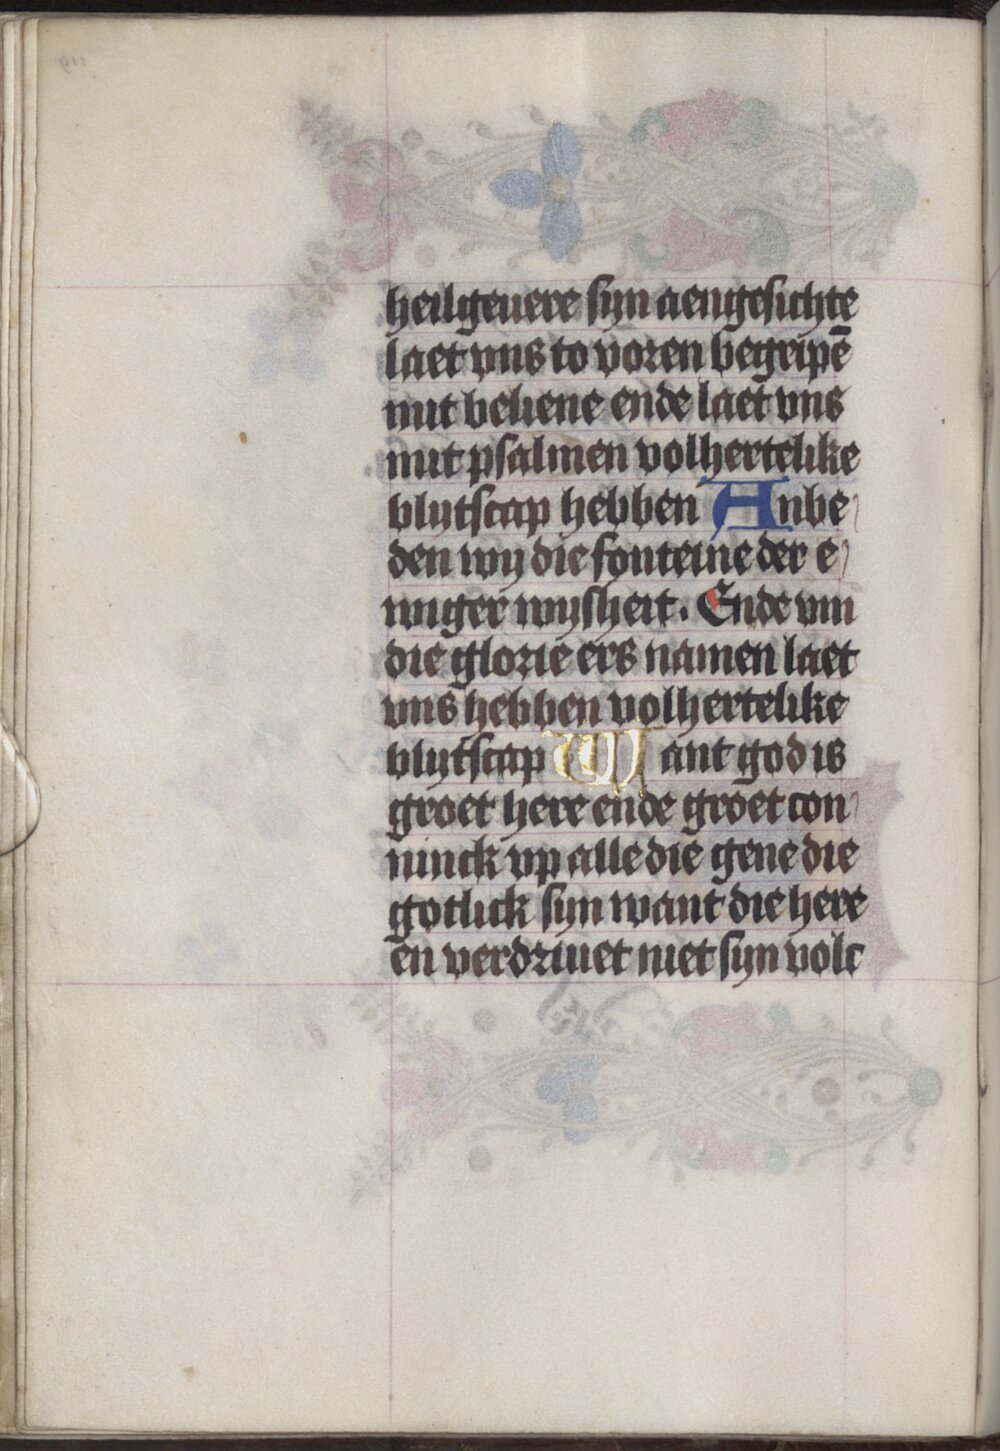 heilgeuere syn aengesichte
laet vns to voren begripē
mit beliene ende laet vns
mit psalmen volhertelike
blijtscap hebben Anbe
den wij die fonteine der e
wiger wijsheit. Ende vm
die glorie ers namen laet
vns hebben volhertelike
blijtscap Want god is
groet here ende groet con
ninck vp alle die gene die
gotlick syn want die here
en verdriuet niet syn volc